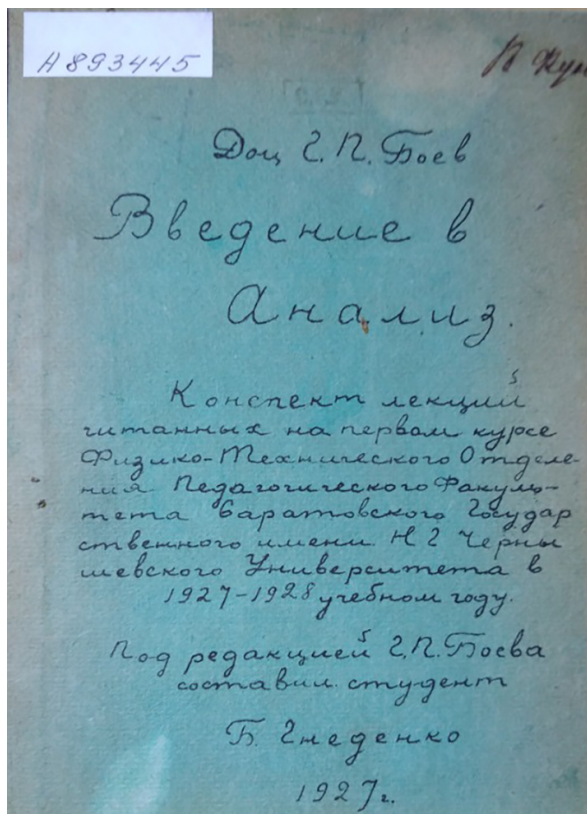 А893445
Доц Г. П. Боев
Введение в
Анализ.
Конспект лекций
читанных на первом курсе
Физико-Технического Отделе-
ния Педагогического Факуль-
тета Саратовского Государ
ственного имени Н Г Черны
шевского Университета в
1927-1928 учебном году.
Под редакцией Г. П. Боева
составил студент
Б. Гнеденко
1927г.